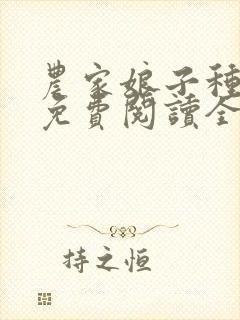 農家娘子種
免費閱讀全
持之恒